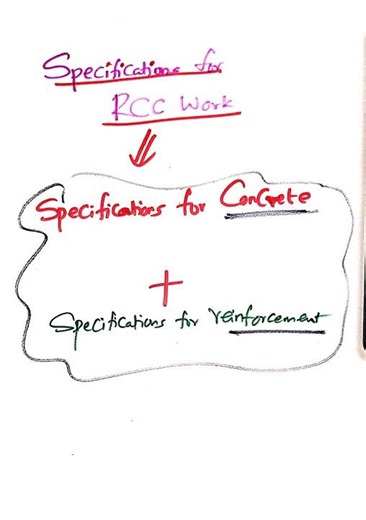 Specifications for
RCC Work
Specifications for Concrete
+
Specifications for reinforcement